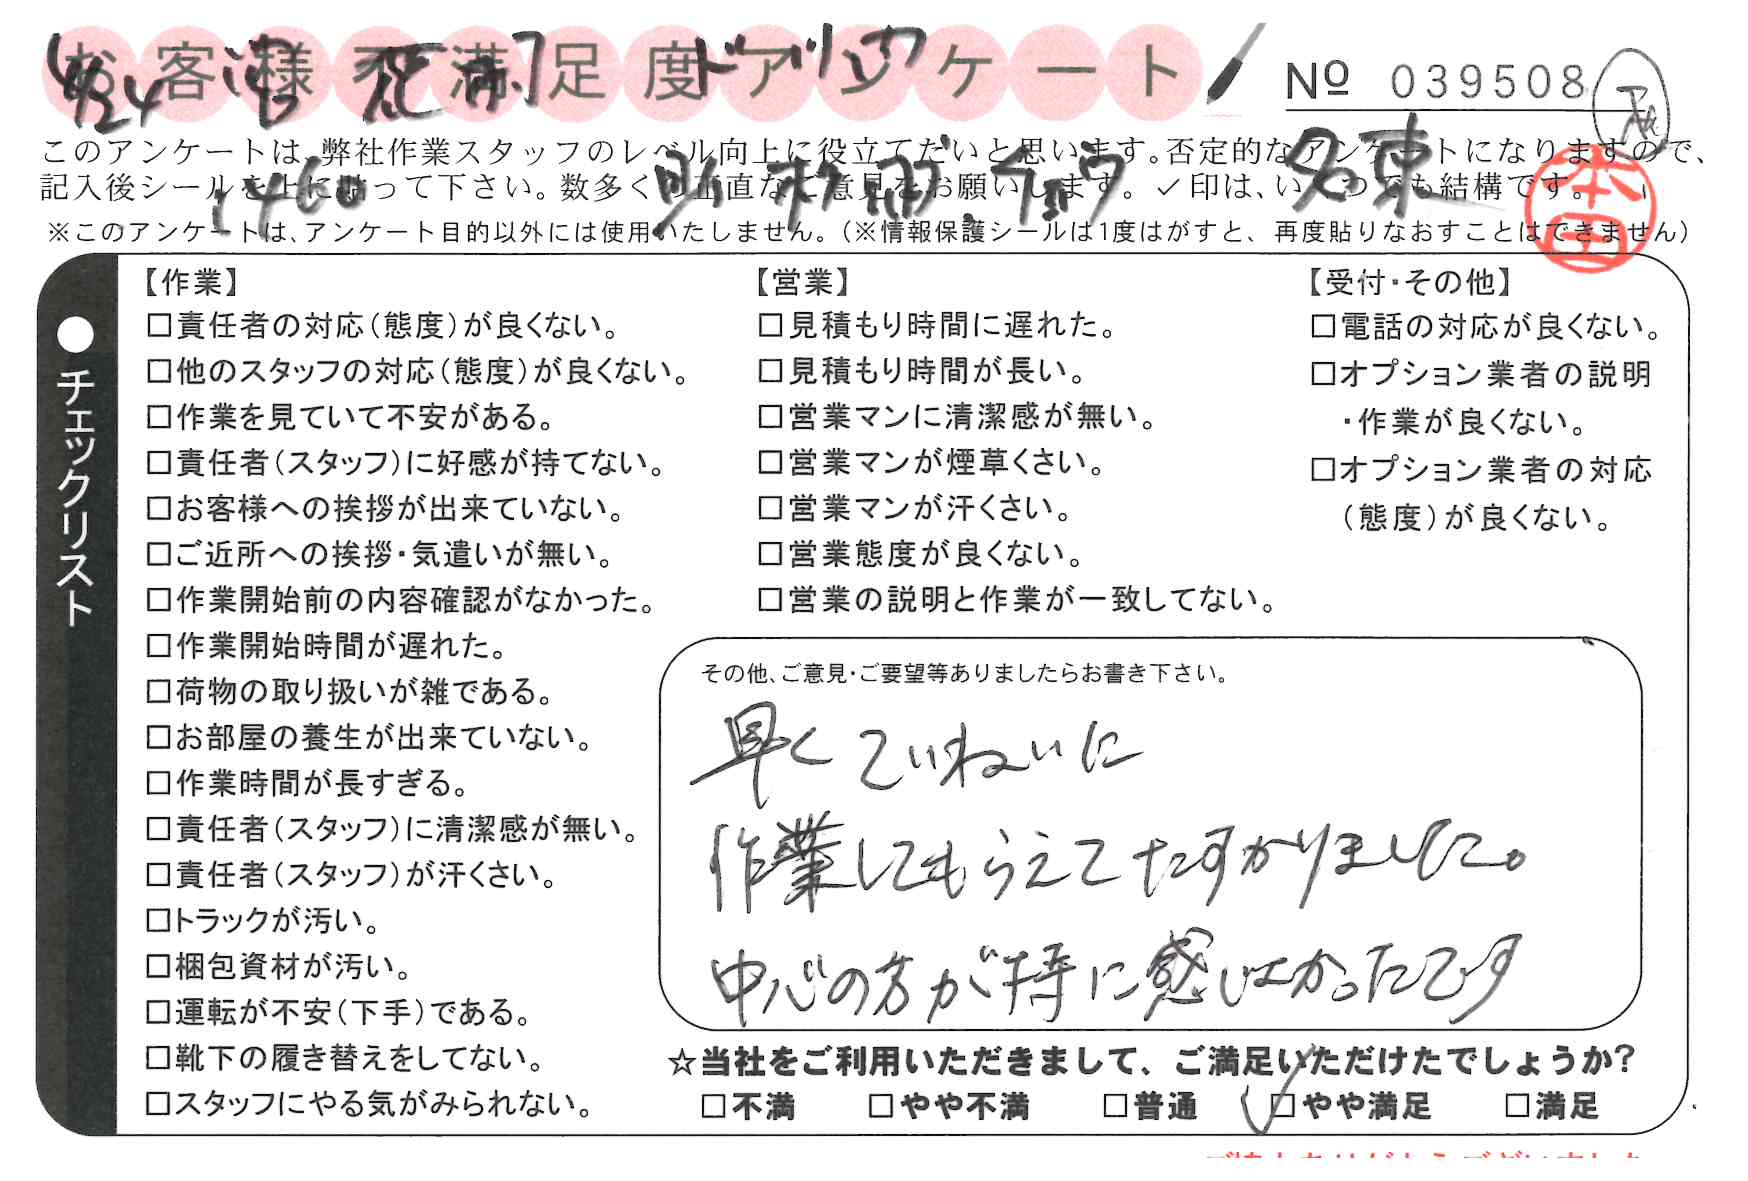 お客様不満足度アンケート
№ 039508
このアンケートは、弊社作業スタッフのレベル向上に役立てたいと思います。否定的なアンケートになりますので、
記入後シールを上に貼って下さい。数多くの正直なご意見をお願いします。✓印は、いくつでも結構です。
※このアンケートは、アンケート目的以外には使用いたしません。（※情報保護シールは1度はがすと、再度貼りなおすことはできません）
4/24
名東
本田
●チェックリスト
【作業】
□責任者の対応（態度）が良くない。
□他のスタッフの対応（態度）が良くない。
□作業を見ていて不安がある。
□責任者（スタッフ）に好感が持てない。
□お客様への挨拶が出来ていない。
□ご近所への挨拶・気遣いが無い。
□作業開始前の内容確認がなかった。
□作業開始時間が遅れた。
□荷物の取り扱いが雑である。
□お部屋の養生が出来ていない。
□作業時間が長すぎる。
□責任者（スタッフ）に清潔感が無い。
□責任者（スタッフ）が汗くさい。
□トラックが汚い。
□梱包資材が汚い。
□運転が不安（下手）である。
□靴下の履き替えをしてない。
□スタッフにやる気がみられない。
【営業】
□見積もり時間に遅れた。
□見積もり時間が長い。
□営業マンに清潔感が無い。
□営業マンが煙草くさい。
□営業マンが汗くさい。
□営業態度が良くない。
□営業の説明と作業が一致してない。
【受付・その他】
□電話の対応が良くない。
□オプション業者の説明
・作業が良くない。
□オプション業者の対応
（態度）が良くない。
その他、ご意見・ご要望等ありましたらお書き下さい。
早くていねいに
作業してもらえてたすかりました。
中心の方が特に感じよかったです
☆当社をご利用いただきまして、ご満足いただけたでしょうか?
□不満 □やや不満 □普通 ☑やや満足 □満足